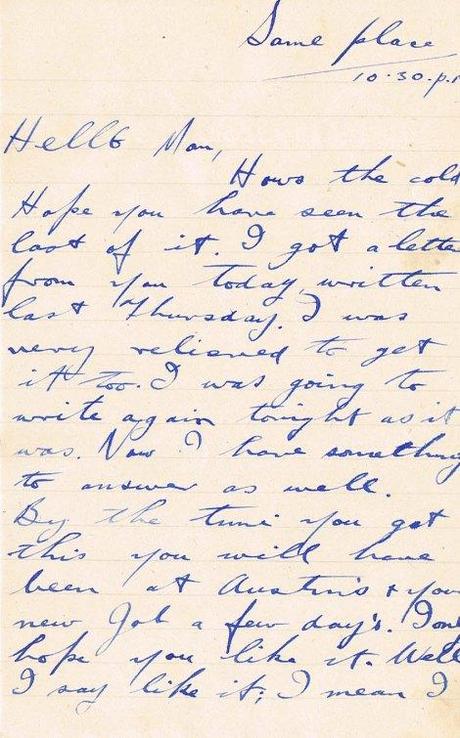 Same place
10.30.p.
Hello Mou,
Hows the cold
Hope you have seen the
last of it. I got a lette
from you today, written
last Thursday. I was
very relieved to get
it too. I was going to
write again tonight as it
was. Now I have something
to answer as well.
By the time you get
this you will have
been at Austins & you
new Job a few day's. I onl
hope you like it. Well
I say like it; I mean I